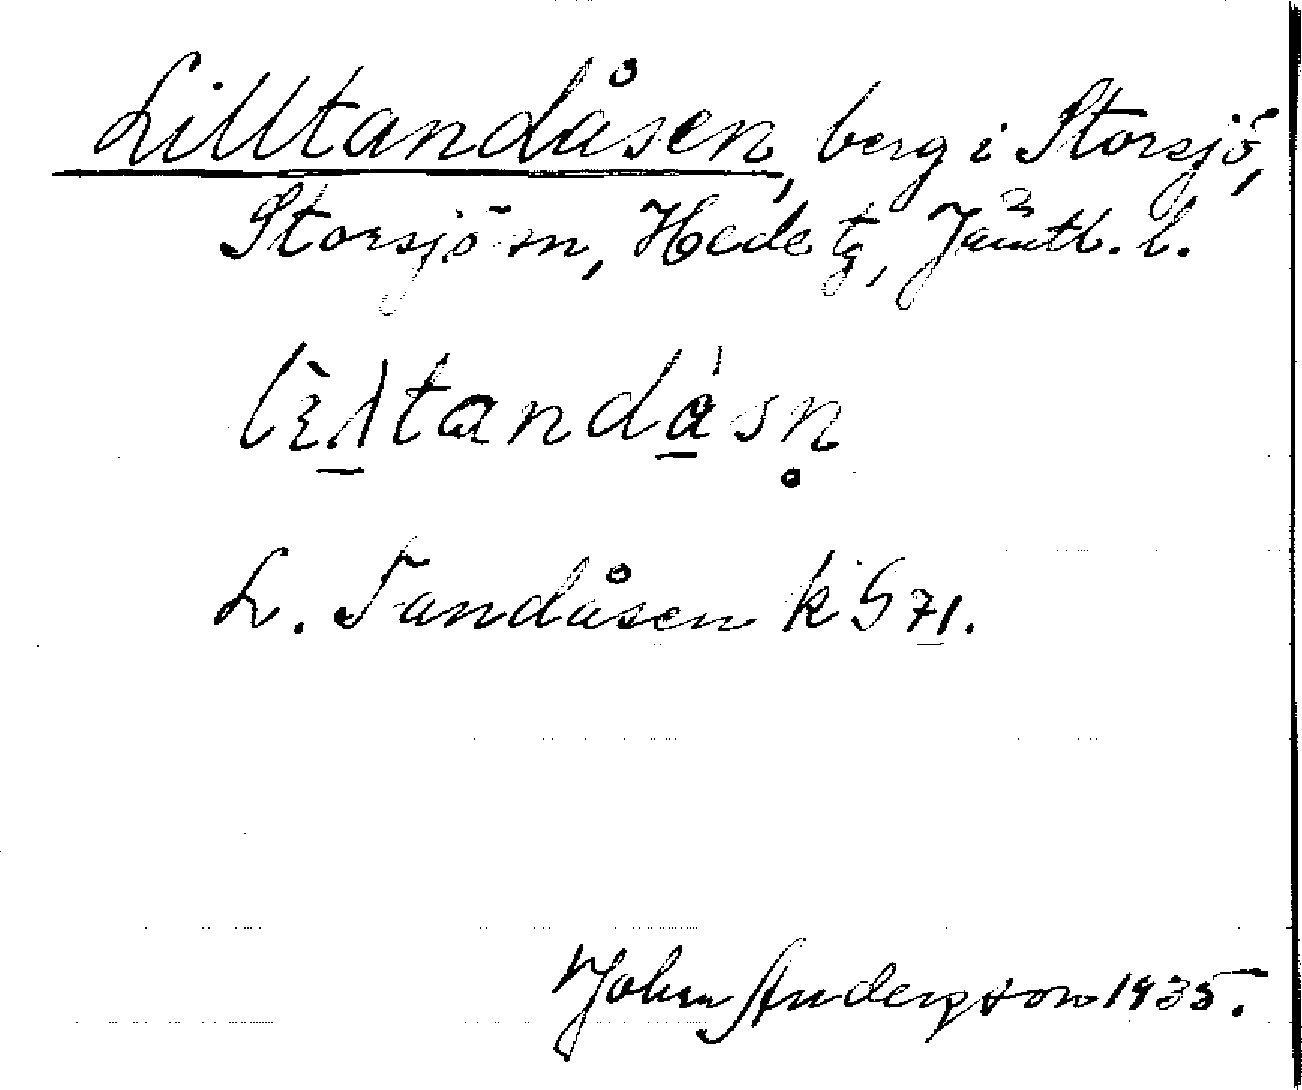 Lilltandåsen, berg i Storsjö,
Storsjö sn, Hede tg, Jämtl. l.
L. Tandåsen k G 71.
John Andersson 1935.